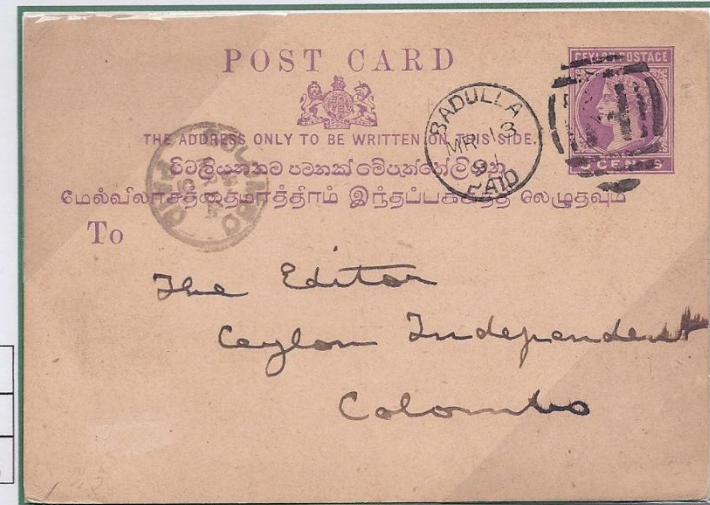 POST CARD
CEYLON POSTAGE
CENTS
BADULLA
MR 13
9
PAID
THE ADDRESS ONLY TO BE WRITTEN ON THIS SIDE.
COLOMBO
PAID
மேல்விலாசத்தைமாத்திரம் இந்தப்பக்கத்தில் லெழுதவும்
To
The Editor
Ceylon Independent
Colombo